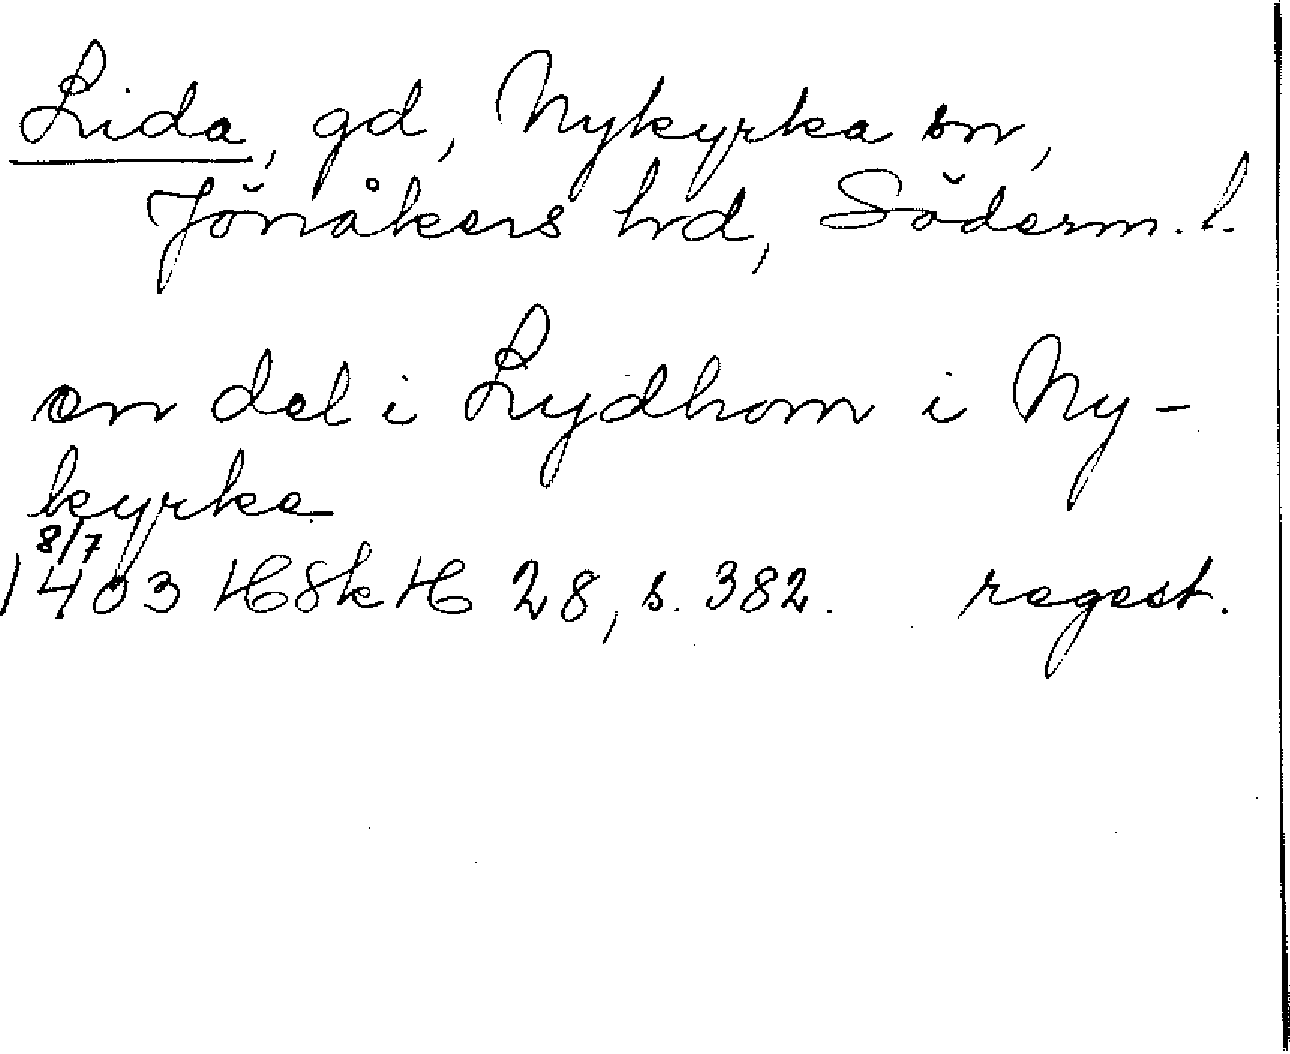 Lida, gd, Nykyrka sn,
Jönåkers hd, Söderm. l.
en del i Lydhom i Ny-
kyrke
8/7
1403 HSkH 28, s. 382. regest.